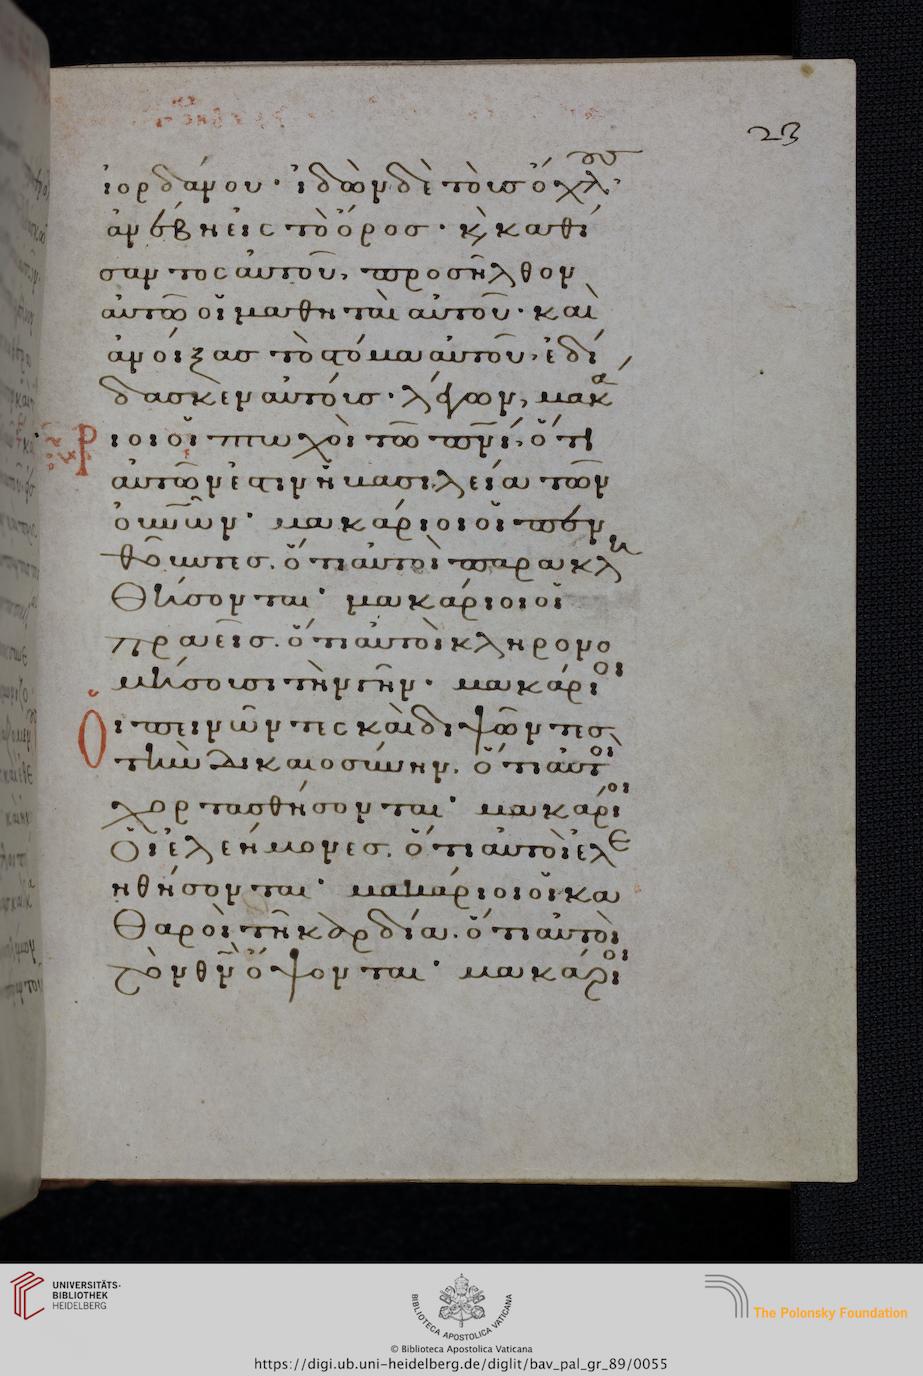 23
ἰορδάνου· ἰδὼν δὲ τοὺσ ὄχλους
ἀνέβη εἰς τὸ ὄρος· κ̀ καθί
σαντος αὐτοῦ, προσῆλθον
αὐτῶ οἱ μαθηταὶ αὐτοῦ· καὶ
ἀνοίξασ τὸ στόμα αὐτοῦ, ἐδί
δασκεν αὐτοὺσ· λέγων, μακά
ριοι οἱ πτωχοὶ τῶ πνί, ὅτι
αὐτῶν ἐστιν ἡ βασιλεία τῶν
οὐνῶν· μακάριοι οἱ πεν
θοῦντεσ. ὅτι αὐτοὶ παρακλη
θήσονται· μακάριοι οἱ
πραεῖσ. ὅτι αὐτοὶ κληρονο
μήσουσι τὴν γῆν· μακάριοι
Οἱ πεινῶντες καὶ διψῶντεσ
τὴν δικαιοσύνην. ὅτι αὐτοὶ
χορτασθήσονται· μακάριοι
Οἱ ἐλεήμονεσ. ὅτι αὐτοὶ ἐλε
ηθήσονται· μακάριοι οἱ κα
θαροὶ τῆ καρδία. ὅτι αὐτοὶ
τὸν θν ὄψονται· μακάριοι
UNIVERSITÄTS-
BIBLIOTHEK
HEIDELBERG
BIBLIOTECA APOSTOLICA VATICANA
The Polonsky Foundation
© Biblioteca Apostolica Vaticana
https://digi.ub.uni-heidelberg.de/diglit/bav_pal_gr_89/0055